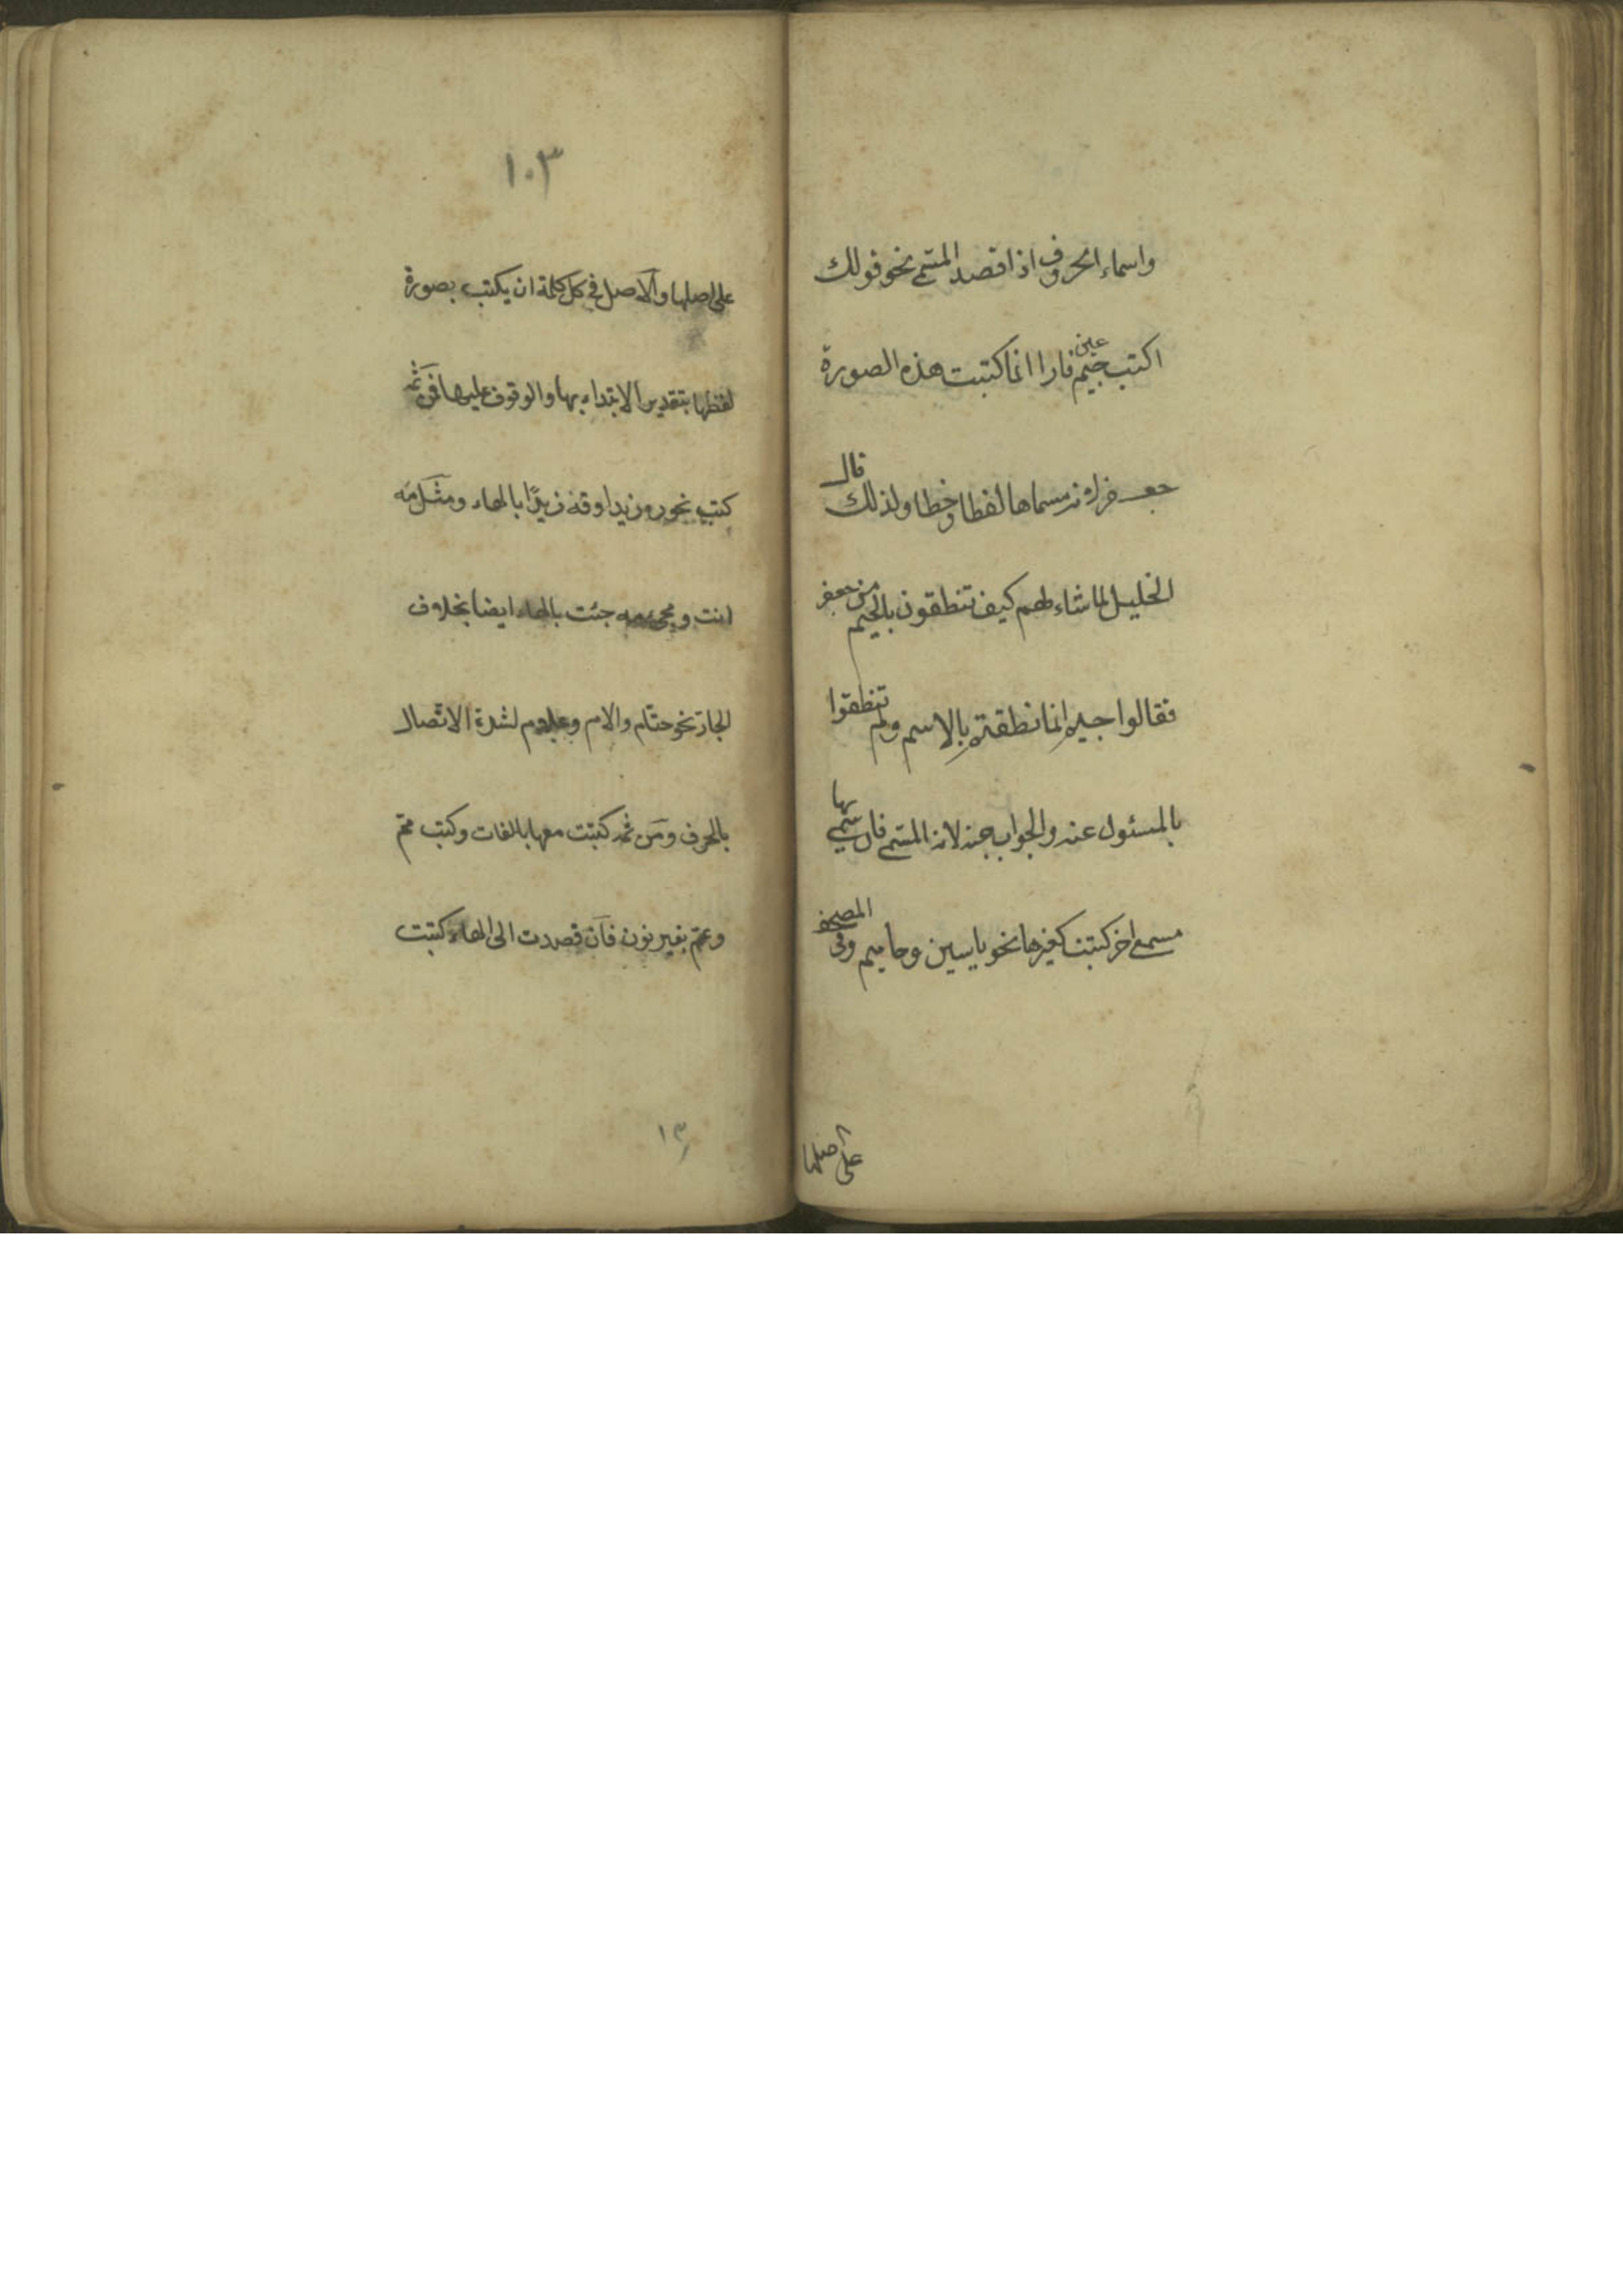 واسماء الحروف اذا قصد المسمى نحو قولك
اكتب جيم عين فا را انما كتبت هذه الصورة
جعفر لانه مسماها لفظا وخطا ولذلك قال
الخليل لما سألهم كيف تنطقون بالجيم من جعفر
فقالوا جيم انما نطقتم بالاسم ولم تنطقوا
بالمسئول عنه والجواب جه لانه المسمى فان سمي بها
مسمى اخر كتبت كغيرها نحو ياسين وحاميم وفى المصحف
على اصلها
١٠٣
على اصلها والاصل فى كل كلمة ان يكتب بصورة
لفظها بتقدير الابتداء بها والوقوف عليها فمن ثمه
كتب نحو ره زيدا وقه زيدًا بالهاء ومثل مه
انت ومجئ مه جئت بالهاء ايضا بخلاف
الجار نحو حتام والام وعلام لشدة الاتصال
بالحرف ومن ثمه كتبت معها بالفات وكتب مم
وعم بغير نون فان قصدت الى الهاء كتبت
١٣